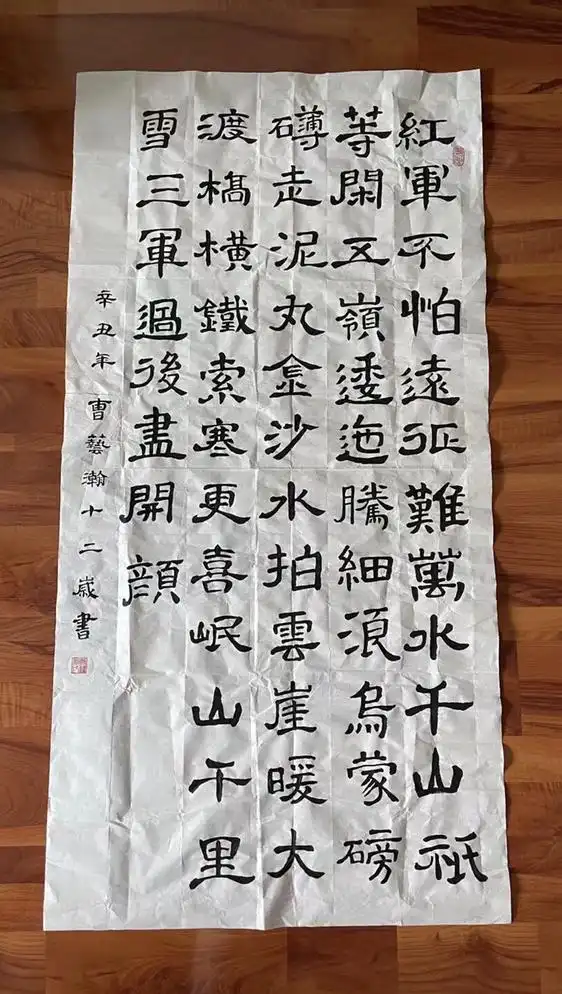 紅軍不怕遠征難萬水千山祇
等閑五嶺逶迤騰細浪烏蒙磅
礴走泥丸金沙水拍雲崖暖大
渡橋橫鐵索寒更喜岷山千里
雪三軍過後盡開顔
辛丑年曹藝瀚十二歲書